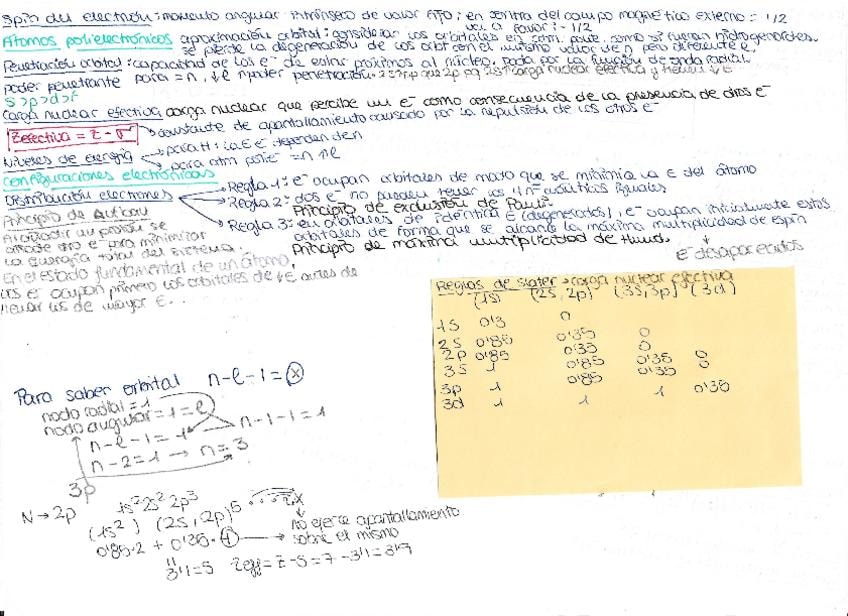 Spin del electrón: momento angular intrínseco de valor fijo; en contra del campo magnético externo = 1/2
val a favor: -1/2
Átomos polielectrónicos aproximación orbital: considerar los orbitales en como si fueran hidrogenoides.
se pierde la degeneración de los orb. con el mismo valor de n pero diferente l.
Penetración orbital: capacidad de los e- de estar próximos al núcleo. Dada por la función de onda radial.
Poder penetrante para = n, ↓l mayor poder penetración. 2s que 2p pq 2s ↑ carga nuclear efectiva y tienen ↓E
s>p>d>f
Carga nuclear efectiva carga nuclear que percibe un e- como consecuencia de la presencia de otros e-
Zefectiva = Z - σ constante de apantallamiento causado por la repulsión de los otros e-
Niveles de energía para H: la E e- dependen de n
para atm polie- = n y l
Configuraciones electrónicas
Distribución electrones Regla 1: e- ocupan orbitales de modo que se minimiza la E del átomo
Regla 2: dos e- no pueden tener los 4 nº cuánticos iguales
Principio de exclusión de Pauli.
Regla 3: en orbitales de idéntica E (degenerados), e- ocupan inicialmente estos
orbitales de forma que se alcance la máxima multiplicidad de espín
Principio de máxima multiplicidad de Hund.
e- desaparecidos
Principio de Aufbau
Al añadir un protón se
añade otro e- para minimizar
la energía total del sistema.
En el estado fundamental de un átomo,
los e- ocupan primero los orbitales de ↓E antes de
llenar los de mayor E...
Reglas de Slater → carga nuclear efectiva
(1s) (2s, 2p) (3s, 3p) (3d)
1s 0'3 0
2s 0'85 0'35 0
2p 0'85 0'35 0
3s 1 0'85 0'35 0
3p 1 0'85 0'35 0
3d 1 1 1 0'35
Para saber orbital n-l-1 = x
nodo radial = 1
nodo angular = 1 = l
n-l-1 = 1 n-1-1 = 1
n-2 = 1 → n = 3
3p
N → 2p 1s² 2s² 2p³
(1s²) (2s, 2p)⁵
0'85·2 + 0'35·4 → no ejerce apantallamiento
sobre él mismo
3'1 = S Zeff = Z - S = 7 - 3'1 = 3'9